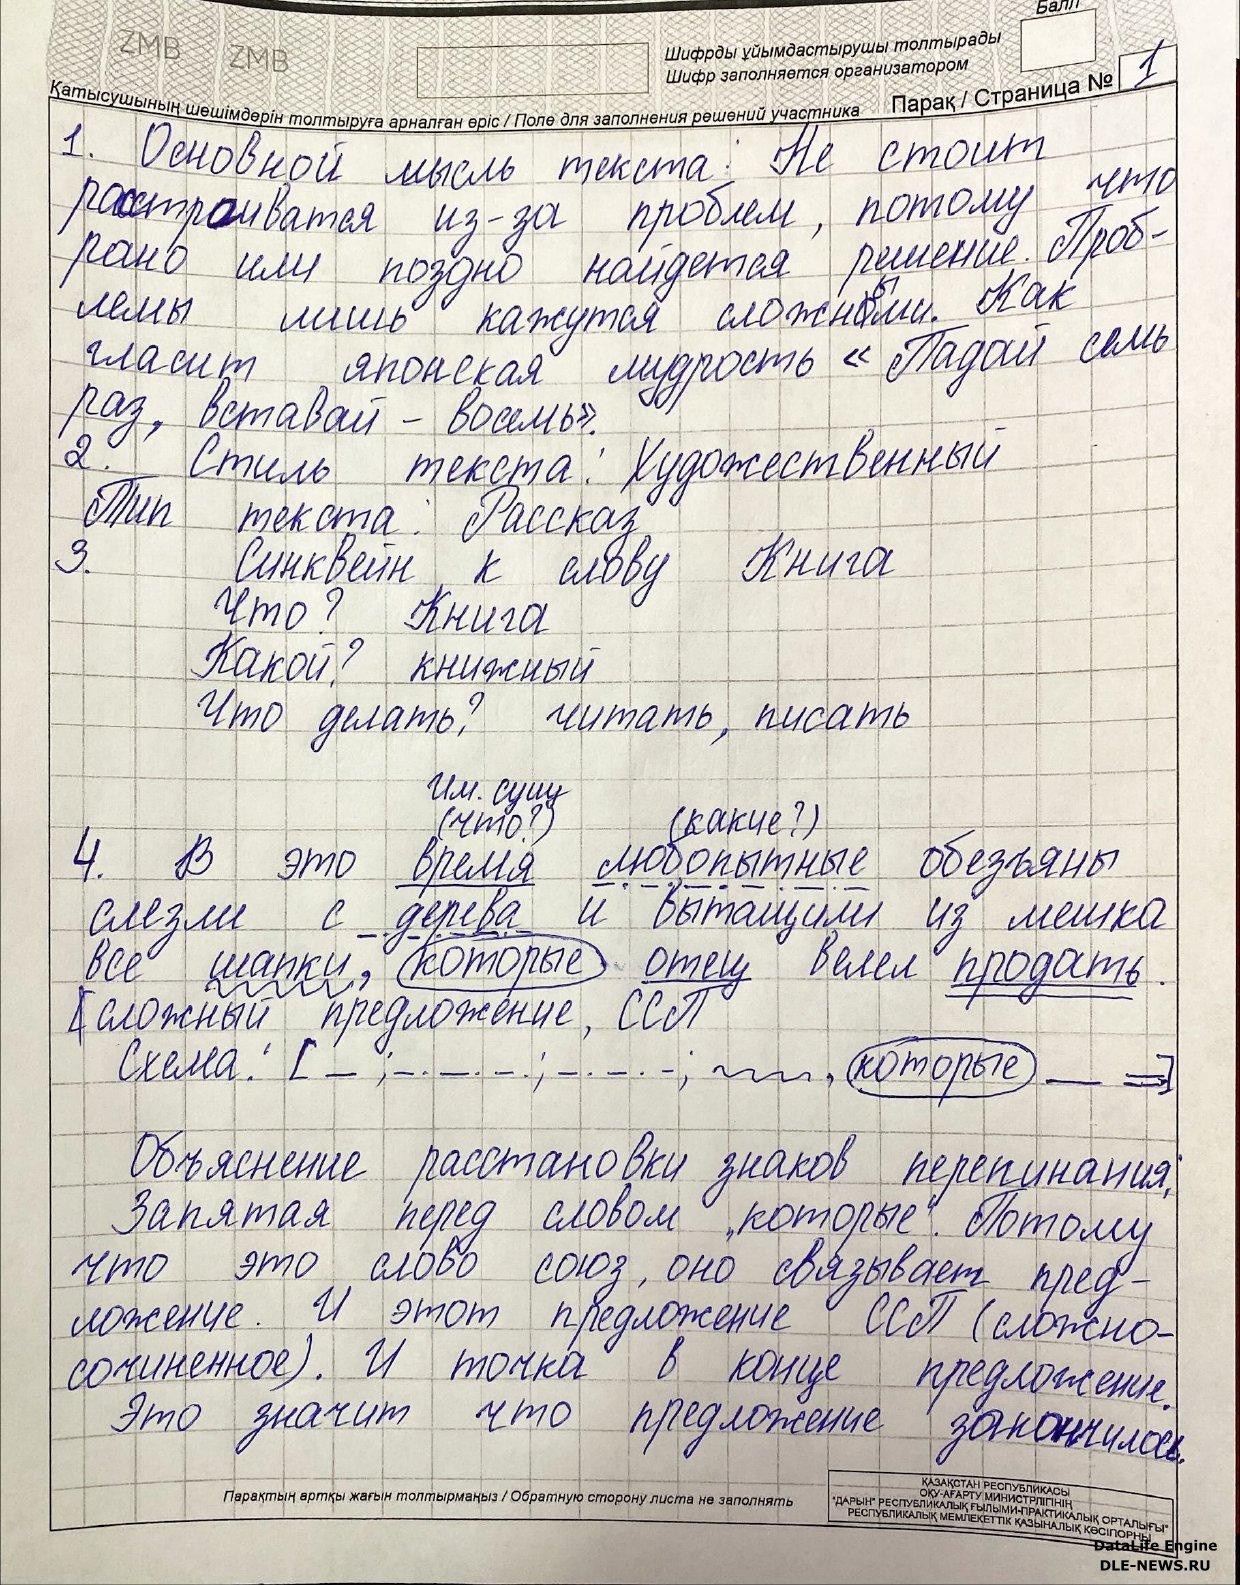 ZMB ZMB
Балл
Шифрды ұйымдастырушы толтырады
Шифр заполняется организатором
Қатысушының шешімдерін толтыруға арналған өріс / Поле для заполнения решений участника
Парақ / Страница № 1
1. Основной мысль текста: Не стоит
расстраиватся из-за проблем, потому что
рано или поздно найдется решение. Проб-
лемы лишь кажутся сложными. Как
гласит японская мудрость « Падай семь
раз, вставай - восемь».
2. Стиль текста: Художественный
Тип текста: Рассказ
3. Синквейн к слову Книга
Что? Книга
Какой? книжный
Что делать? читать, писать
Им. сущ
(что?) (какие?)
4. В это время любопытные обезъяны
слезли с дерева и вытащили из мешка
все шапки, которые отец велел продать.
[сложный предложение, ССП
Схема: [ — ; -.-.-.- ; -.-.-.- ; , которые — = ]
Объяснение расстановки знаков перепинания:
Запятая перед словом „которые“. Потому
что это слово союз, оно связывает пред-
ложение. И этот предложение ССП (сложно-
сочиненное). И точка в конце предложение.
Это значит что предложение закончилось.
Парақтың артқы жағын толтырмаңыз / Обратную сторону листа не заполнять
ҚАЗАҚСТАН РЕСПУБЛИКАСЫ
ОҚУ-АҒАРТУ МИНИСТРЛІГІНІҢ
"ДАРЫН" РЕСПУБЛИКАЛЫҚ ҒЫЛЫМИ-ПРАКТИКАЛЫҚ ОРТАЛЫҒЫ"
РЕСПУБЛИКАЛЫҚ МЕМЛЕКЕТТІК ҚАЗЫНАЛЫҚ КӘСІПОРНЫ
DataLife Engine
DLE-NEWS.RU